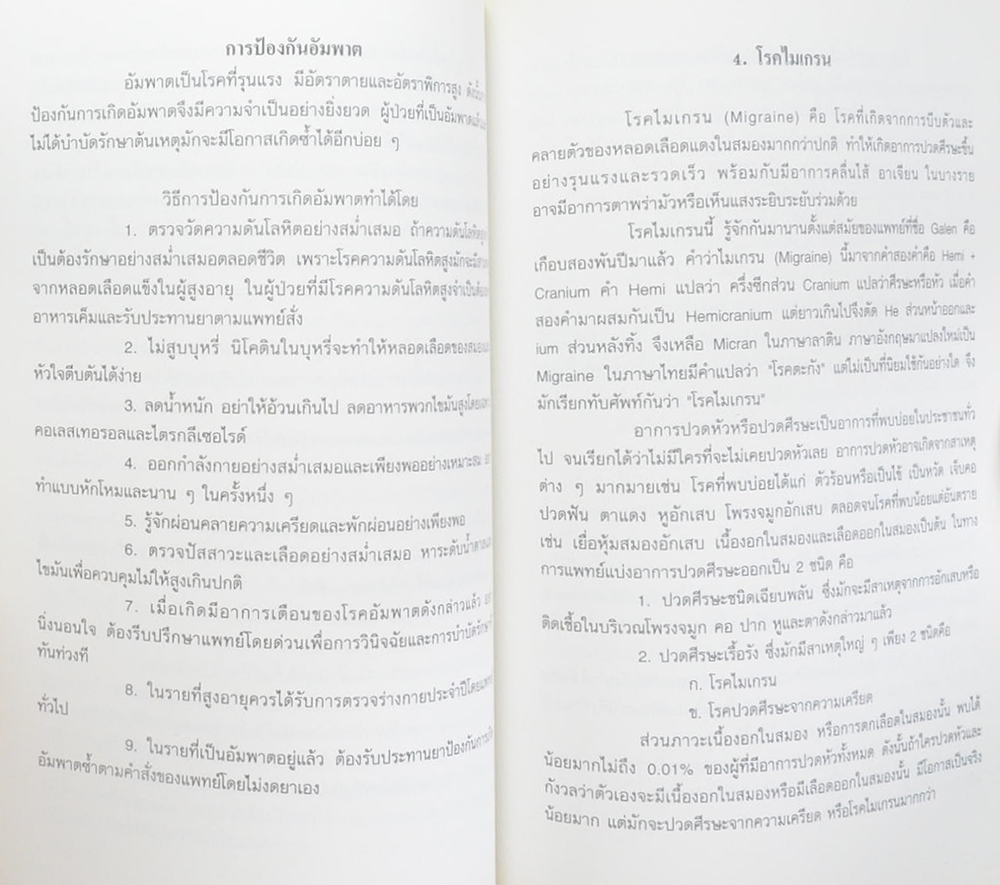 การป้องกันอัมพาต
อัมพาตเป็นโรคที่รุนแรง มีอัตราตายและอัตราพิการสูง
ป้องกันการเกิดอัมพาตจึงมีความจำเป็นอย่างยิ่งยวด ผู้ป่วยที่เป็นอัมพาต
ไม่ได้บำบัดรักษาต้นเหตุมักจะมีโอกาสเกิดซ้ำได้อีกบ่อย ๆ
วิธีการป้องกันการเกิดอัมพาตทำได้โดย
1. ตรวจวัดความดันโลหิตอย่างสม่ำเสมอ ถ้าความดันโลหิต
เป็นต้องรักษาอย่างสม่ำเสมอตลอดชีวิต เพราะโรคความดันโลหิตสูงมักจะมี
จากหลอดเลือดแข็งในผู้สูงอายุ ในผู้ป่วยที่มีโรคความดันโลหิตสูงจำเป็นต้อง
อาหารเค็มและรับประทานยาตามแพทย์สั่ง
2. ไม่สูบบุหรี่ นิโคตินในบุหรี่จะทำให้หลอดเลือดของ
หัวใจตีบตันได้ง่าย
3. ลดน้ำหนัก อย่าให้อ้วนเกินไป ลดอาหารพวกไขมันสูง
คอเลสเทอรอลและไตรกลีเซอไรด์
4. ออกกำลังกายอย่างสม่ำเสมอและเพียงพออย่างเหมาะสม
ทำแบบหักโหมและนาน ๆ ในครั้งหนึ่ง ๆ
5. รู้จักผ่อนคลายความเครียดและพักผ่อนอย่างเพียงพอ
6. ตรวจปัสสาวะและเลือดอย่างสม่ำเสมอ หาระดับน้ำตาล
ไขมันเพื่อควบคุมไม่ให้สูงเกินปกติ
7. เมื่อเกิดมีอาการเตือนของโรคอัมพาตดังกล่าวแล้ว
นิ่งนอนใจ ต้องรีบปรึกษาแพทย์โดยด่วนเพื่อการวินิจฉัยและการบำบัดรักษา
ทันท่วงที
8. ในรายที่สูงอายุควรได้รับการตรวจร่างกายประจำปีโดย
ทั่วไป
9. ในรายที่เป็นอัมพาตอยู่แล้ว ต้องรับประทานยาป้องกัน
อัมพาตซ้ำตามคำสั่งของแพทย์โดยไม่งดยาเอง
4. โรคไมเกรน
โรคไมเกรน (Migraine) คือ โรคที่เกิดจากการบีบตัวและ
คลายตัวของหลอดเลือดแดงในสมองมากกว่าปกติ ทำให้เกิดอาการปวดศีรษะขึ้น
อย่างรุนแรงและรวดเร็ว พร้อมกับมีอาการคลื่นไส้ อาเจียน ในบางราย
อาจมีอาการตาพร่ามัวหรือเห็นแสงระยิบระยับร่วมด้วย
โรคไมเกรนนี้ รู้จักกันมานานตั้งแต่สมัยของแพทย์ที่ชื่อ Galen คือ
เกือบสองพันปีมาแล้ว คำว่าไมเกรน (Migraine) นี้มาจากคำสองคำคือ Hemi +
Cranium คำ Hemi แปลว่า ครึ่งซีกส่วน Cranium แปลว่าศีรษะหรือหัว เมื่อคำ
สองคำมาผสมกันเป็น Hemicranium แต่ยาวเกินไปจึงตัด He ส่วนหน้าออกและ
ium ส่วนหลังทิ้ง จึงเหลือ Micran ในภาษาลาติน ภาษาอังกฤษมาแปลงใหม่เป็น
Migraine ในภาษาไทยมีคำแปลว่า "โรคตะกัง" แต่ไม่เป็นที่นิยมใช้กันอย่างใด จึง
มักเรียกทับศัพท์กันว่า "โรคไมเกรน"
อาการปวดหัวหรือปวดศีรษะเป็นอาการที่พบบ่อยในประชาชนทั่ว
ไป จนเรียกได้ว่าไม่มีใครที่จะไม่เคยปวดหัวเลย อาการปวดหัวอาจเกิดจากสาเหตุ
ต่าง ๆ มากมายเช่น โรคที่พบบ่อยได้แก่ ตัวร้อนหรือเป็นไข้ เป็นหวัด เจ็บคอ
ปวดฟัน ตาแดง หูอักเสบ โพรงจมูกอักเสบ ตลอดจนโรคที่พบน้อยแต่อันตราย
เช่น เยื่อหุ้มสมองอักเสบ เนื้องอกในสมองและเลือดออกในสมองเป็นต้น ในทาง
การแพทย์แบ่งอาการปวดศีรษะออกเป็น 2 ชนิด คือ
1. ปวดศีรษะชนิดเฉียบพลัน ซึ่งมักจะมีสาเหตุจากการอักเสบหรือ
ติดเชื้อในบริเวณโพรงจมูก คอ ปาก หูและตาดังกล่าวมาแล้ว
2. ปวดศีรษะเรื้อรัง ซึ่งมักมีสาเหตุใหญ่ ๆ เพียง 2 ชนิดคือ
ก. โรคไมเกรน
ข. โรคปวดศีรษะจากความเครียด
ส่วนภาวะเนื้องอกในสมอง หรือการตกเลือดในสมองนั้น พบได้
น้อยมากไม่ถึง 0.01% ของผู้ที่มีอาการปวดหัวทั้งหมด ดังนั้นถ้าใครปวดหัวและ
กังวลว่าตัวเองจะมีเนื้องอกในสมองหรือมีเลือดออกในสมองนั้น มีโอกาสเป็นจริง
น้อยมาก แต่มักจะปวดศีรษะจากความเครียด หรือโรคไมเกรนมากกว่า